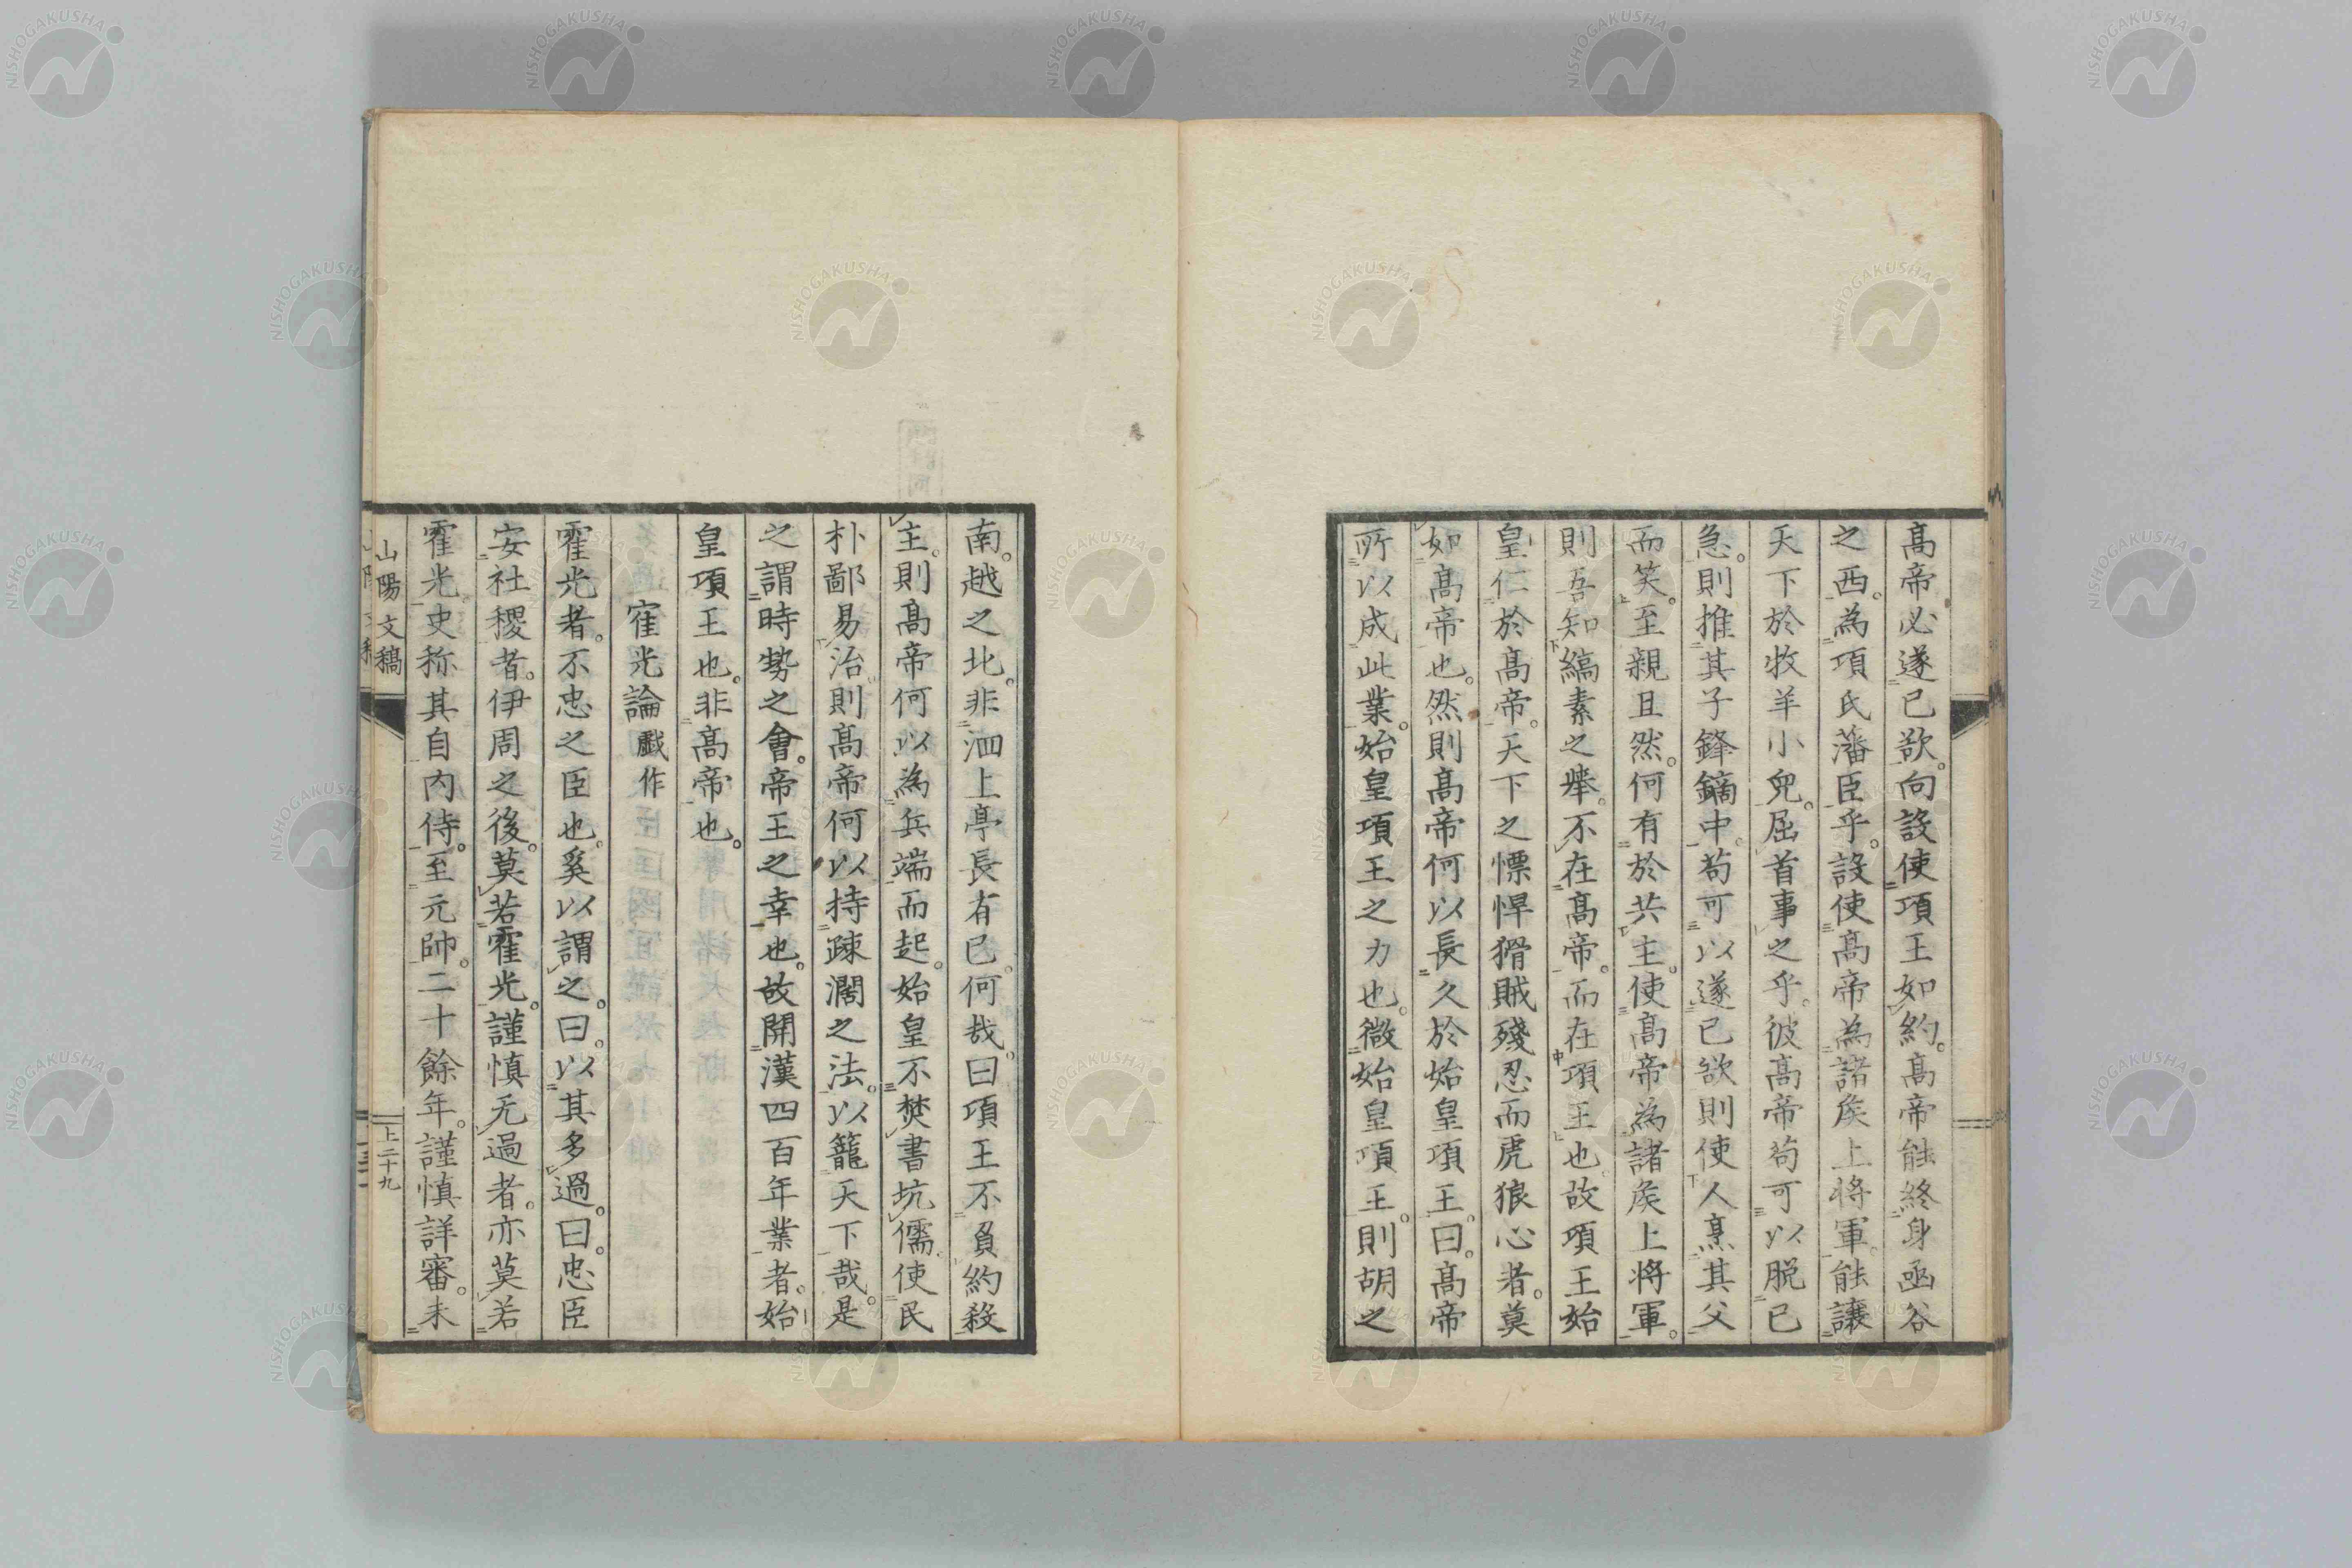 高帝必遂已欲。向設使項王如約。高帝能終身函谷
之西。為項氏藩臣乎。設使高帝為諸矦上将軍。能讓
天下於牧羊小兒。屈首事之乎。彼高帝苟可以脱已
急。則推其子鋒鏑中。苟可以遂已欲則使人烹其父
而笑。至親且然。何有於共主。使高帝為諸矦上将軍。
則吾知縞素之舉。不在高帝。而在項王也。故項王始
皇仁於高帝。天下之慓悍猾賊殘忍而虎狼心者。莫
如高帝也。然則高帝何以長久於始皇項王。曰。高帝
所以成此業。始皇項王之力也。微始皇項王。則胡之
南。越之北。非泗上亭長有已。何哉。曰項王不負約殺
主。則高帝何以為兵端而起。始皇不焚書坑儒。使民
朴鄙易治則高帝何以持疎濶之法。以籠天下哉。是
之謂時勢之會。帝王之幸也。故開漢四百年業者。始
皇項王也。非高帝也。
霍光論戲作
霍光者。不忠之臣也。奚以謂之。曰。以其多過。曰。忠臣
安社稷者。伊周之後。莫若霍光。謹慎无過者。亦莫若
霍光。史称其自内侍。至元帥。二十餘年。謹慎詳審。未
山陽文稿
上二十九
NISHOGAKUSHA